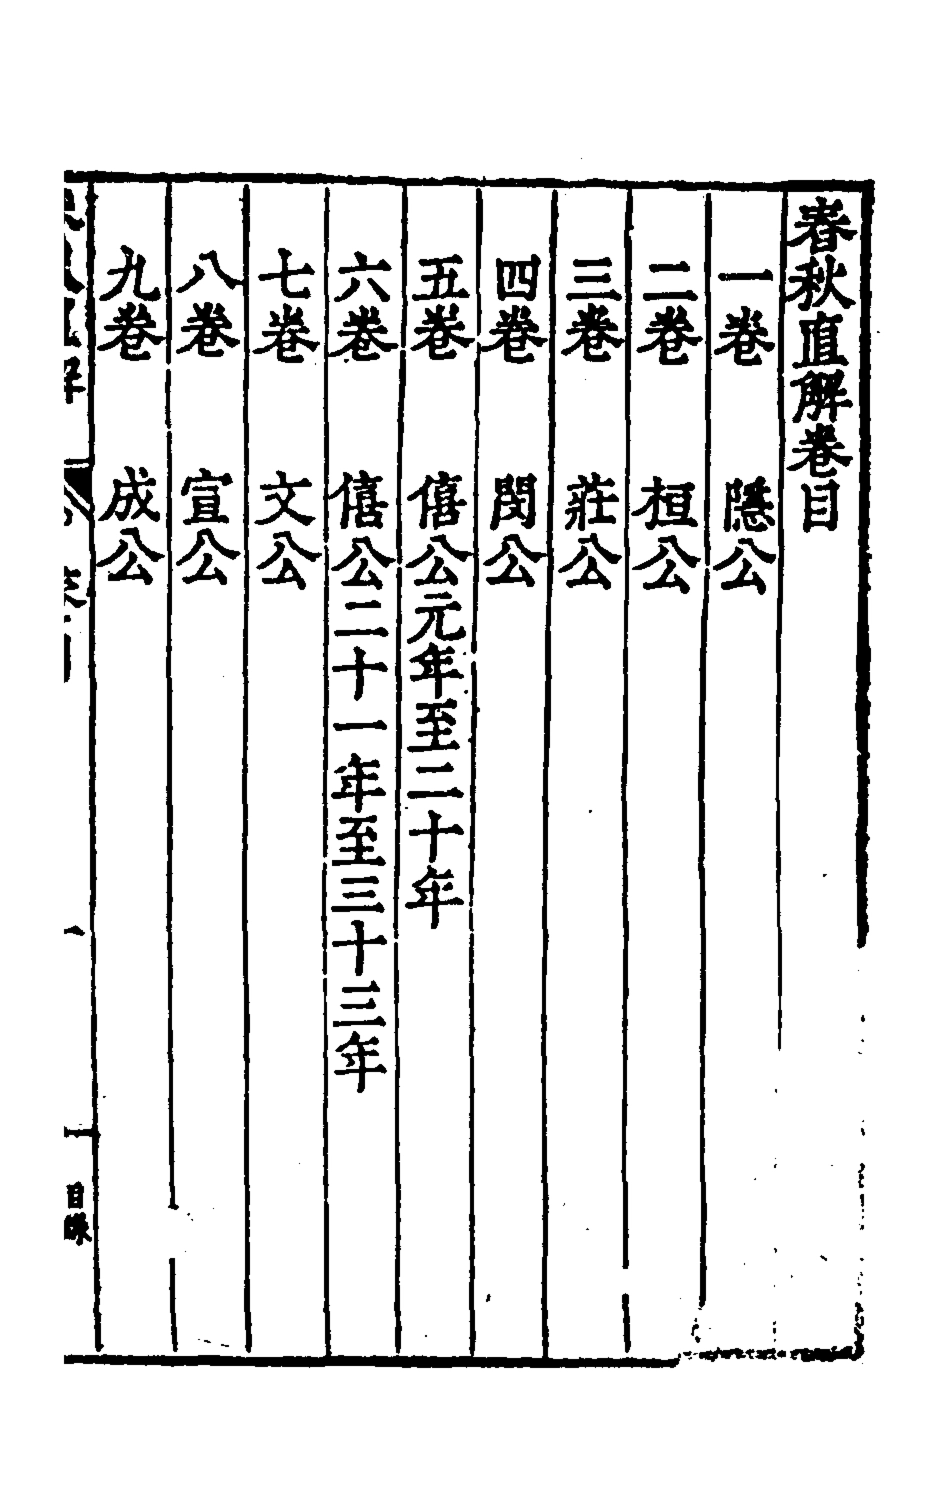 春秋直解卷目
一卷 隱公
二卷 桓公
三卷 莊公
四卷 閔公
五卷 僖公元年至二十年
六卷 僖公二十一年至三十三年
七卷 文公
八卷 宣公
九卷 成公
目錄